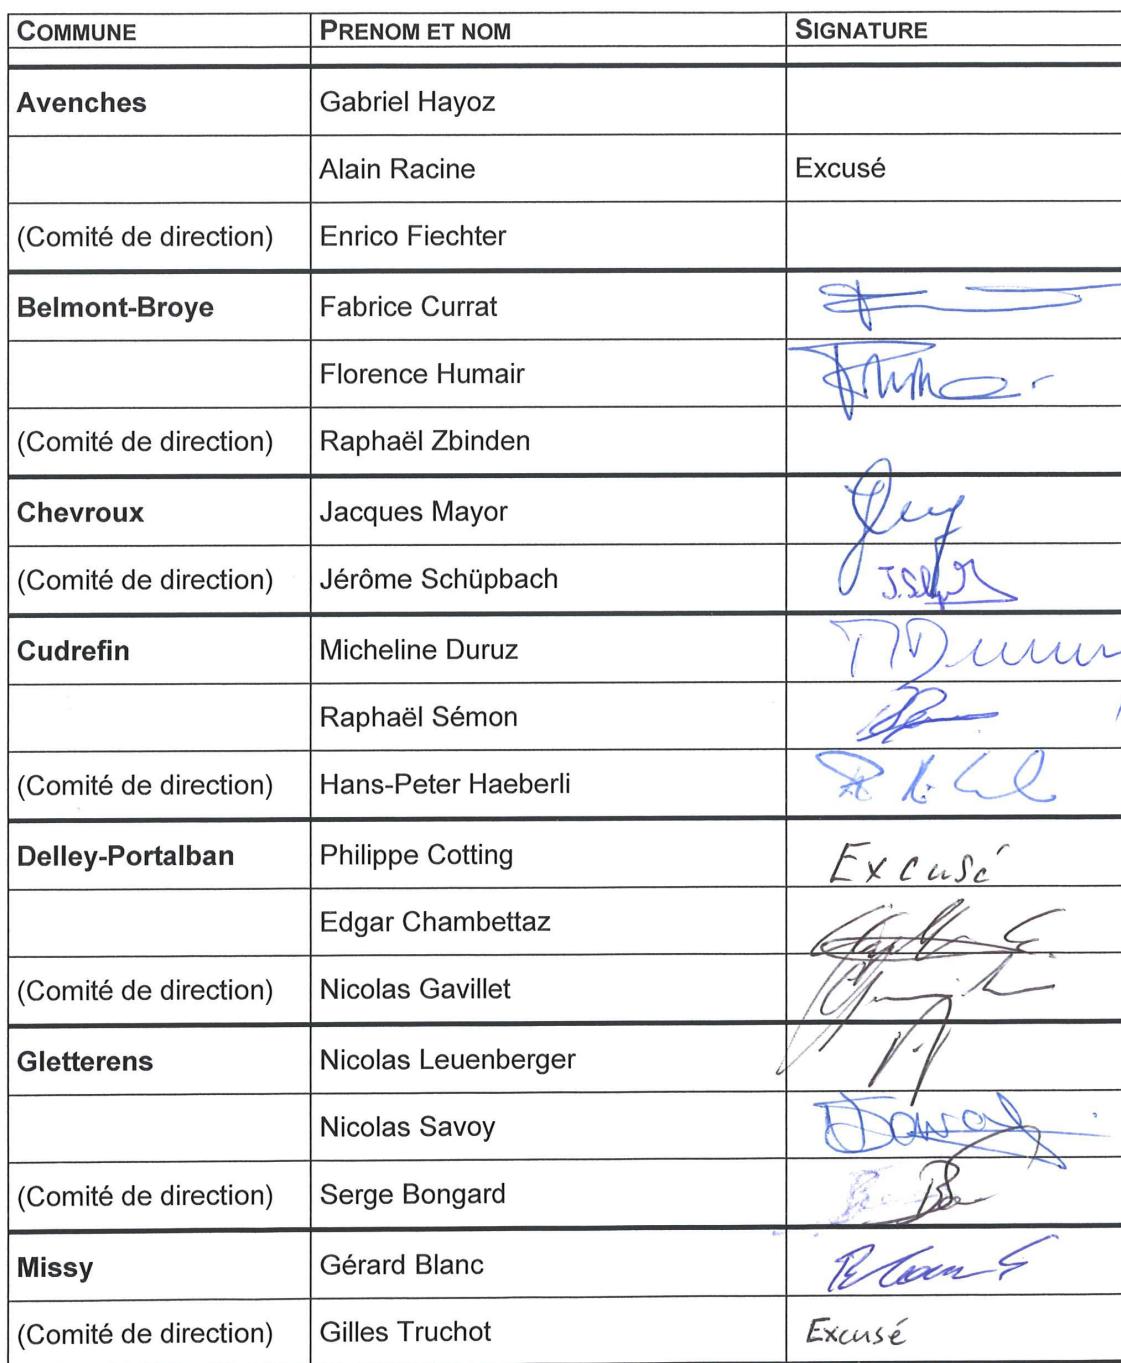 COMMUNE PRENOM ET NOM SIGNATURE
Avenches Gabriel Hayoz
Alain Racine Excusé
(Comité de direction) Enrico Fiechter
Belmont-Broye Fabrice Currat
Florence Humair
(Comité de direction) Raphaël Zbinden
Chevroux Jacques Mayor
(Comité de direction) Jérôme Schüpbach
Cudrefin Micheline Duruz
Raphaël Sémon
(Comité de direction) Hans-Peter Haeberli
Delley-Portalban Philippe Cotting Excusé
Edgar Chambettaz
(Comité de direction) Nicolas Gavillet
Gletterens Nicolas Leuenberger
Nicolas Savoy
(Comité de direction) Serge Bongard
Missy Gérard Blanc
(Comité de direction) Gilles Truchot Excusé